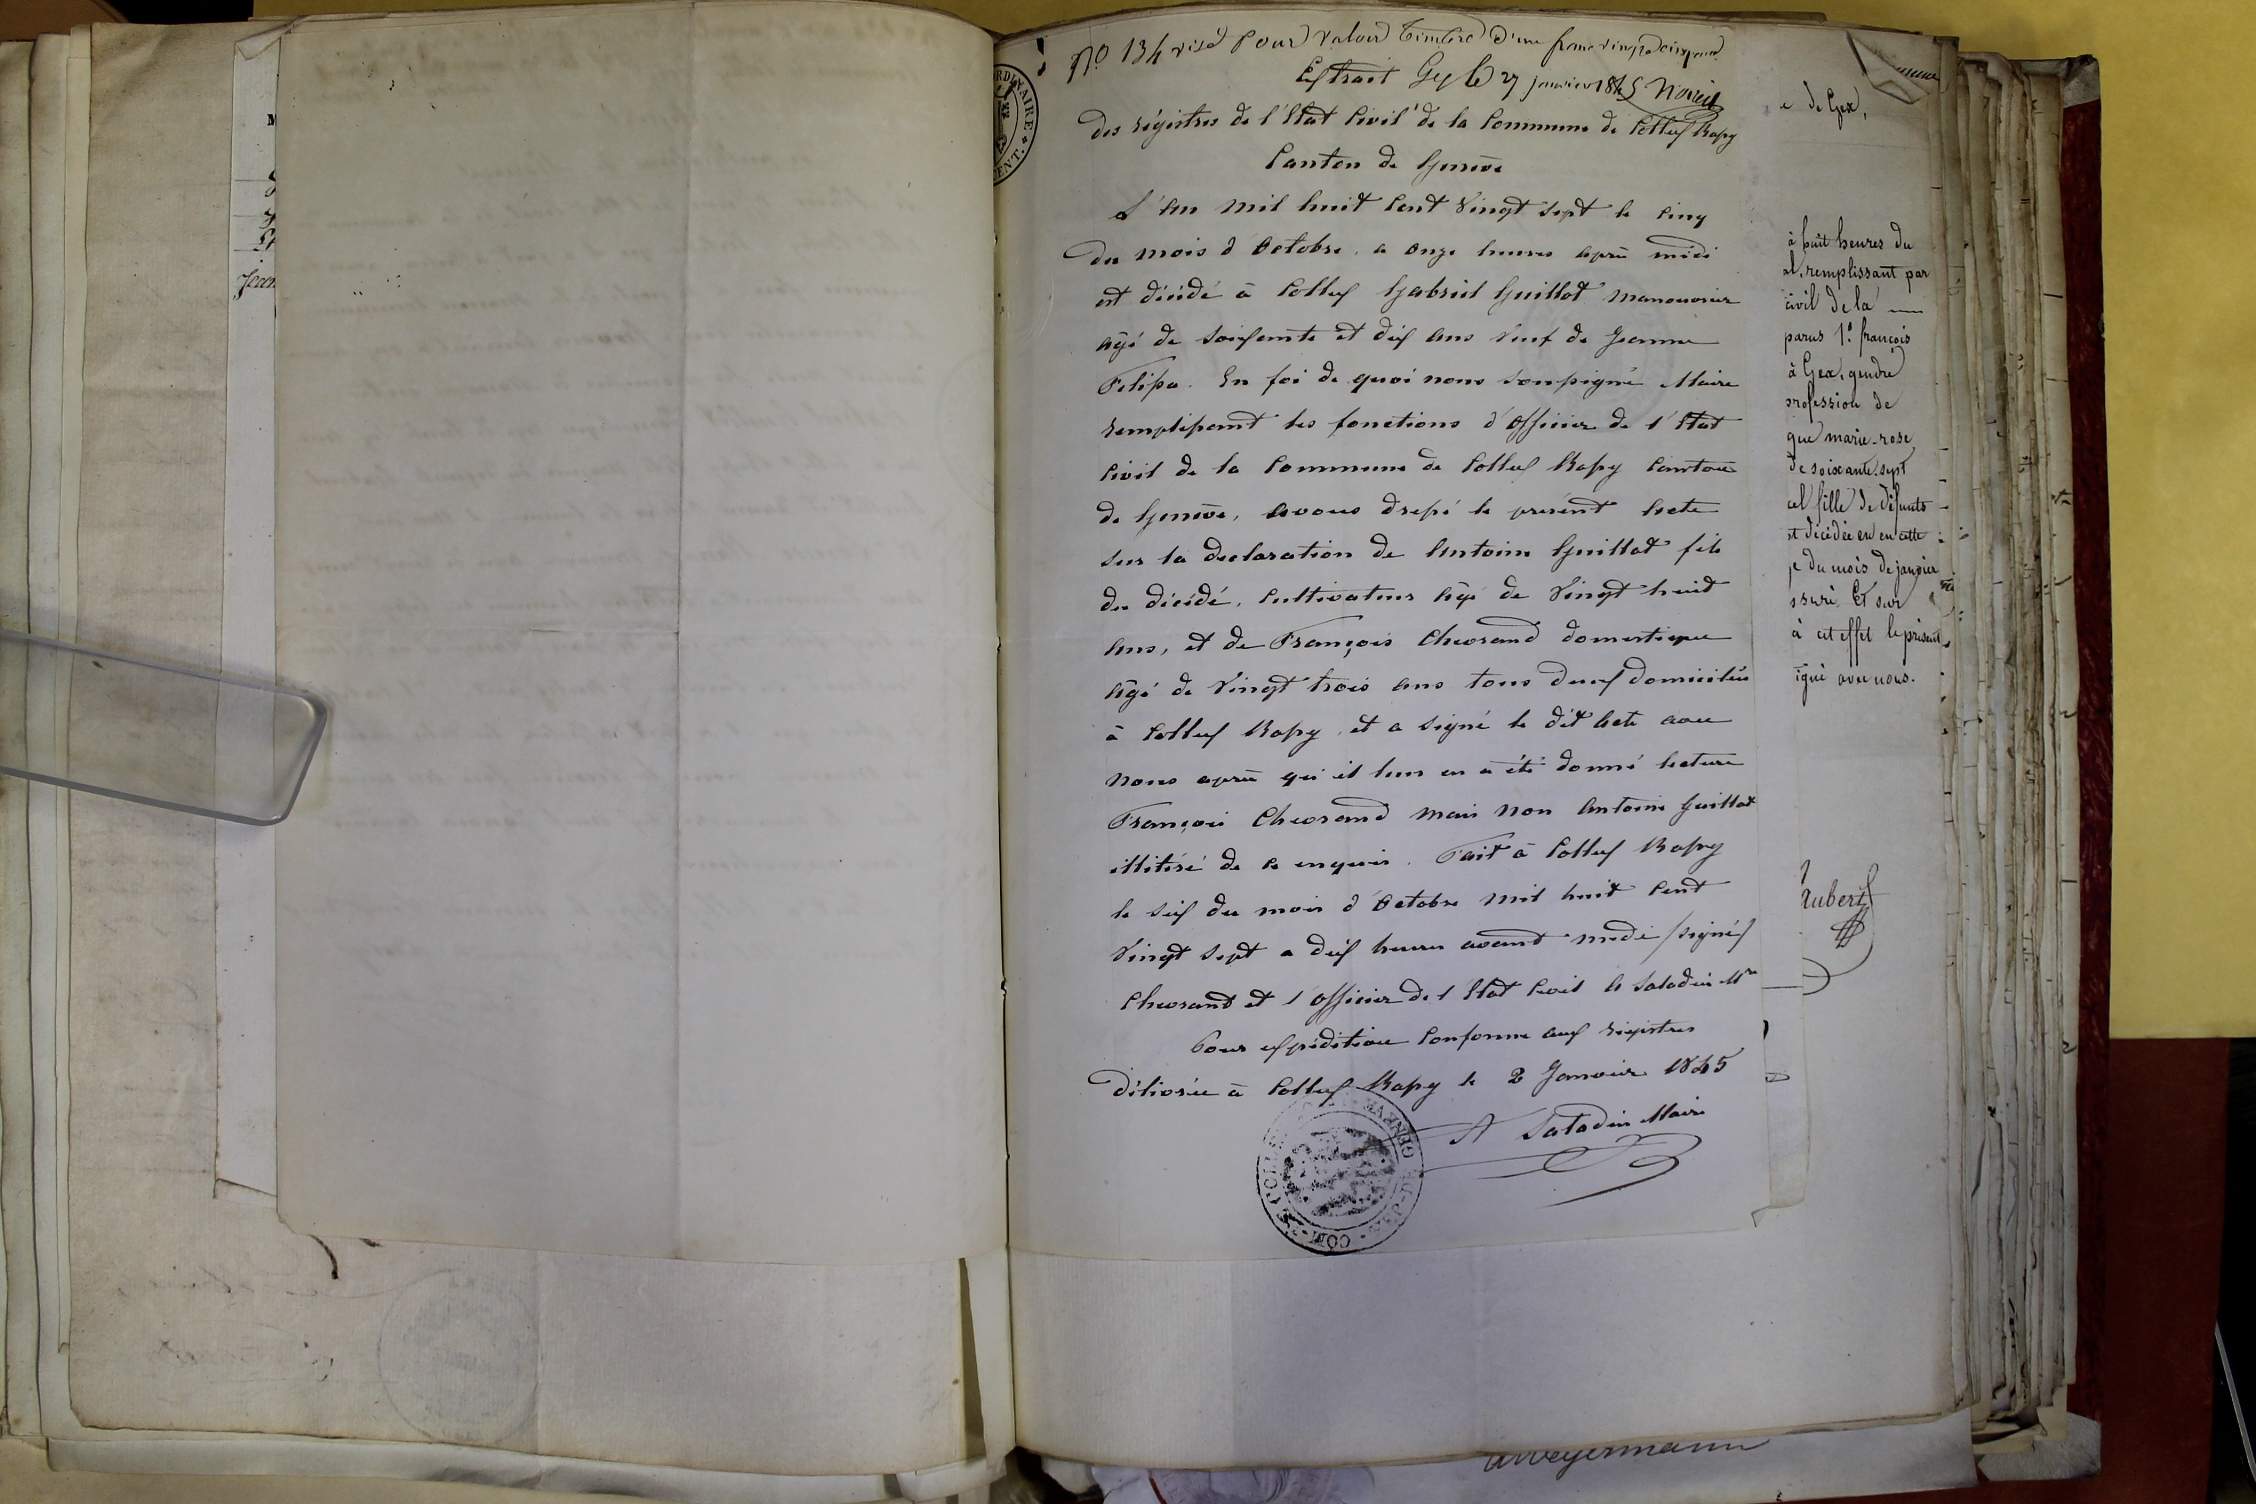 No 134 visé pour valoir timbre d'un franc vingt cinq
Extrait Gex le 27 janvier 1845
des régistres de l'Etat Civil de la Commune de Collex Bossy
Canton de Genève
L'An mil huit Cent Vingt sept le Cinq
du mois d'Octobre, a onze heures après midi
est décédé à Collex Gabriel Guillot manouvrier
agé de soixante et dix ans veuf de Jeanne
Felipa. En foi de quoi nous soussigné Maire
remplissant les fonctions d'officier de l'Etat
Civil de la Commune de Collex Bossy Canton
de Genève, avons dressé le présent Acte
sur la declaration de Antoine Guillot fils
du décédé, Cultivateur agé de Vingt huit
Ans, et de François Chevrand domestique
agé de Vingt trois ans tous deux domiciliés
à Collex Bossy, et a signé le dit Acte avec
nous après qu'il leur en a été donné lecture
François Chevrand mais non Antoine Guillot
illitéré de ce enquis. Fait à Collex Bossy
le six du mois d'Octobre mil huit Cent
Vingt sept a dix heures avant midi /signés/
Chevrand et l'officier de l'Etat Civil A Saladin Mre
Pour expédition Conforme aux registres
délivrée à Collex Bossy le 2 Janvier 1845
A Saladin Maire
COM
GENEVE
ORDINAIRE
de Gex,
à huit heures du
remplissant par
civil de la
parus 1º françois
à Gex, gendre
profession de
que marie-rose
de soixante-sept
fille de défunts
décédée en cette
du mois de janvier
Et sur
à cet effet le présent
igné avec nous.
Aubert
Weyermann